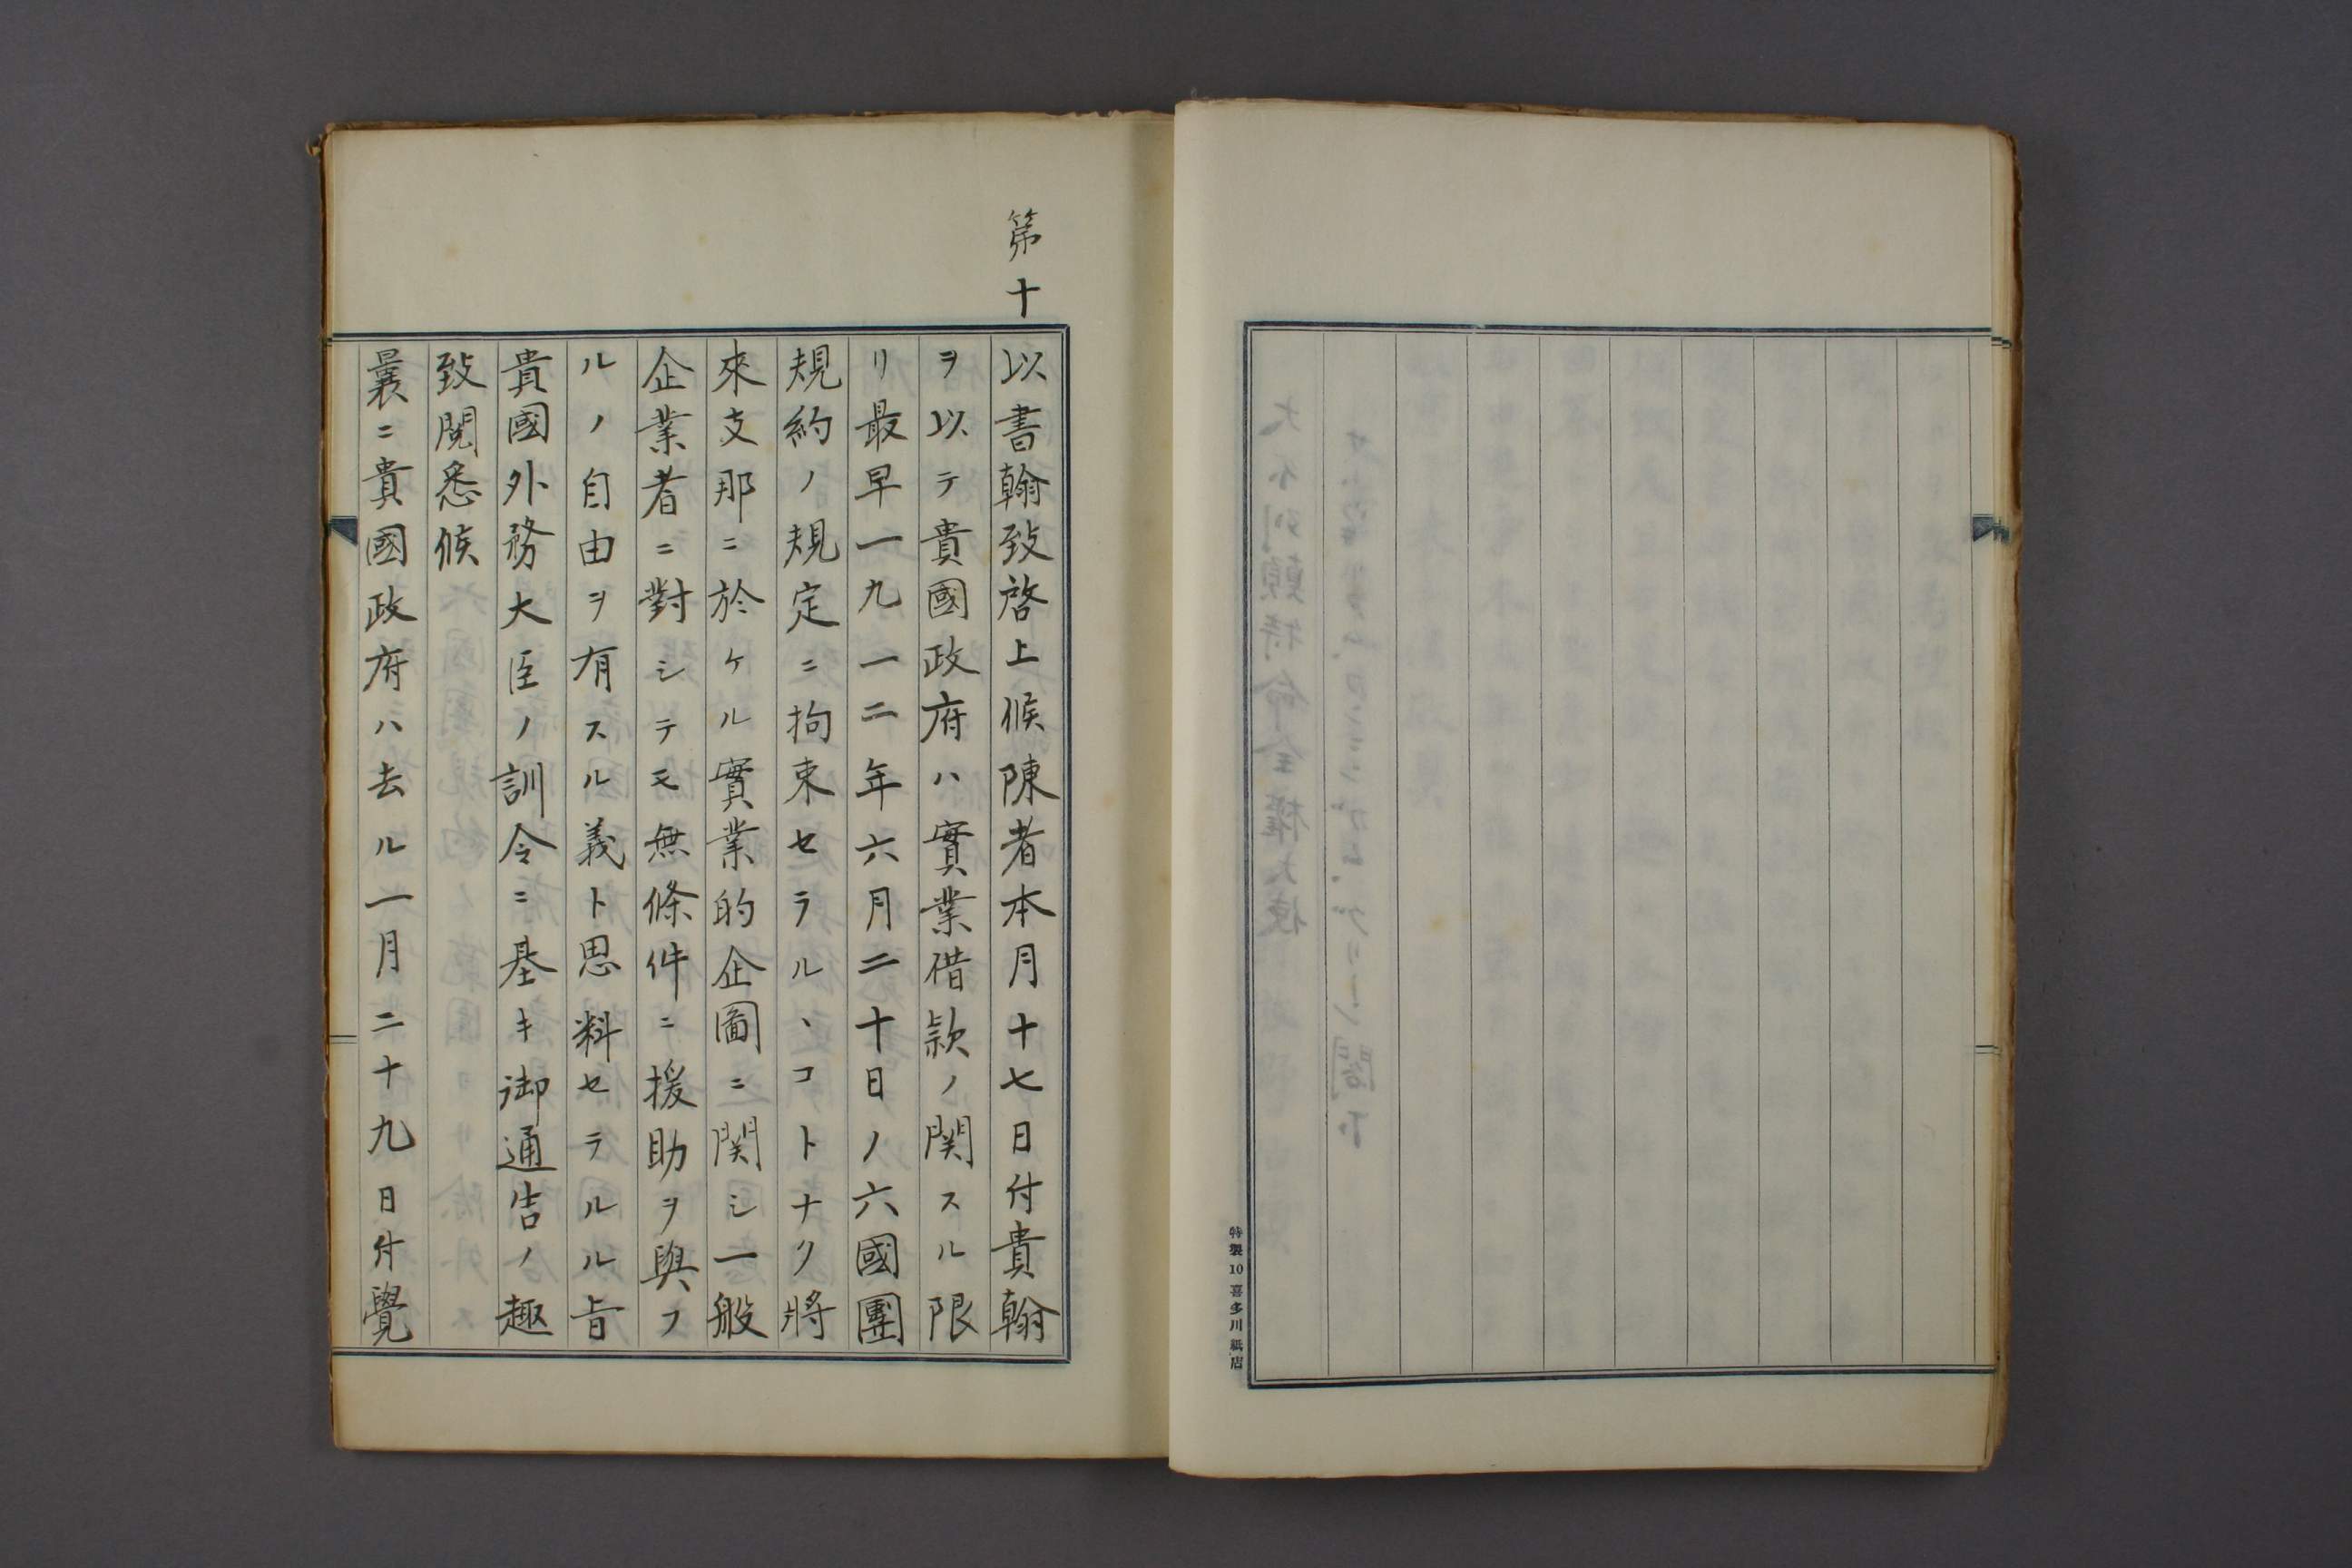 特製10 喜多川紙店
第十
以書翰致啓上候陳者本月十七日付貴翰
ヲ以テ貴國政府ハ實業借款ノ関スル限
リ最早一九一二年六月二十日ノ六國團
規約ノ規定ニ拘束セラルヽコトナク將
來支那ニ於ケル實業的企圖ニ関シ一般
企業者ニ對シテモ無條件ニ援助ヲ與フ
ルノ自由ヲ有スル義ト思料セラルル旨
貴國外務大臣ノ訓令ニ基キ御通告ノ趣
致閲悉候
曩ニ貴國政府ハ去ル一月二十九日付覺